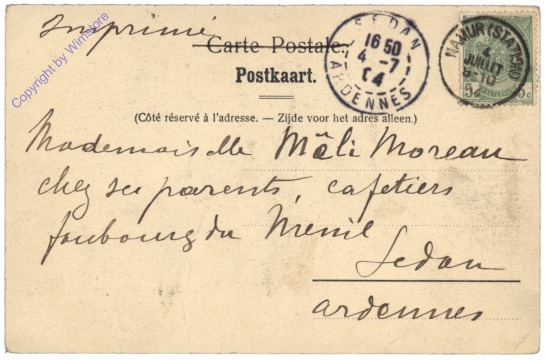 Imprimé
Carte Postale.
Postkaart.
(Côté réservé à l'adresse. — Zijde voor het adres alleen.)
Mademoiselle Mâli Moreau
chez ses parents, cafetiers
faubourg du Menil
Sedan
ardennes
SEDAN
16 50
4 - 7
04
ARDENNES
NAMUR (STATION)
4
JUILLET
04
5 c
Copyright by Wimstore